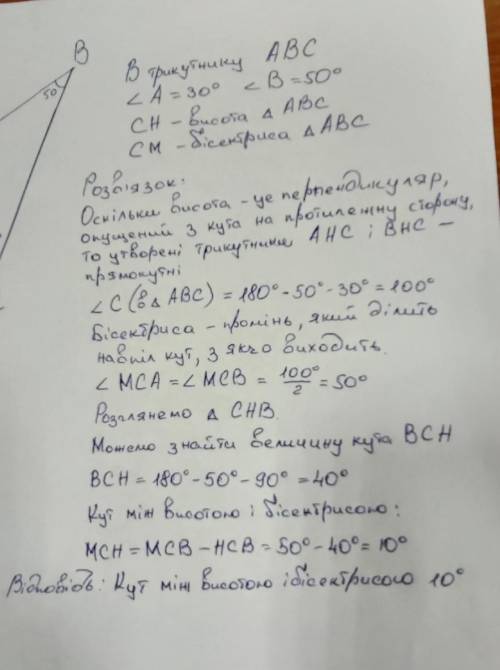 B
50
В трикутнику ABC
∠A = 30° ∠B = 50°
CH – висота △ ABC
CM – бісектриса △ ABC
Розв'язок:
Оскільки висота – це перпендикуляр,
опущений з кута на протилежну сторону,
то утворені трикутники AHC і BHC –
прямокутні
∠C (в △ ABC) = 180° - 50° - 30° = 100°
Бісектриса – промінь, який ділить
навпіл кут, з якго виходить.
∠ MCA = ∠ MCB = 100°/2 = 50°
Розглянемо △ CHB.
Можемо знайти величину кута BCH
BCH = 180° - 50° - 90° = 40°
Кут між висотою і бісектрисою:
MCH = MCB – HCB = 50° - 40° = 10°
Відповідь: Кут між висотою і бісектрисою 10°